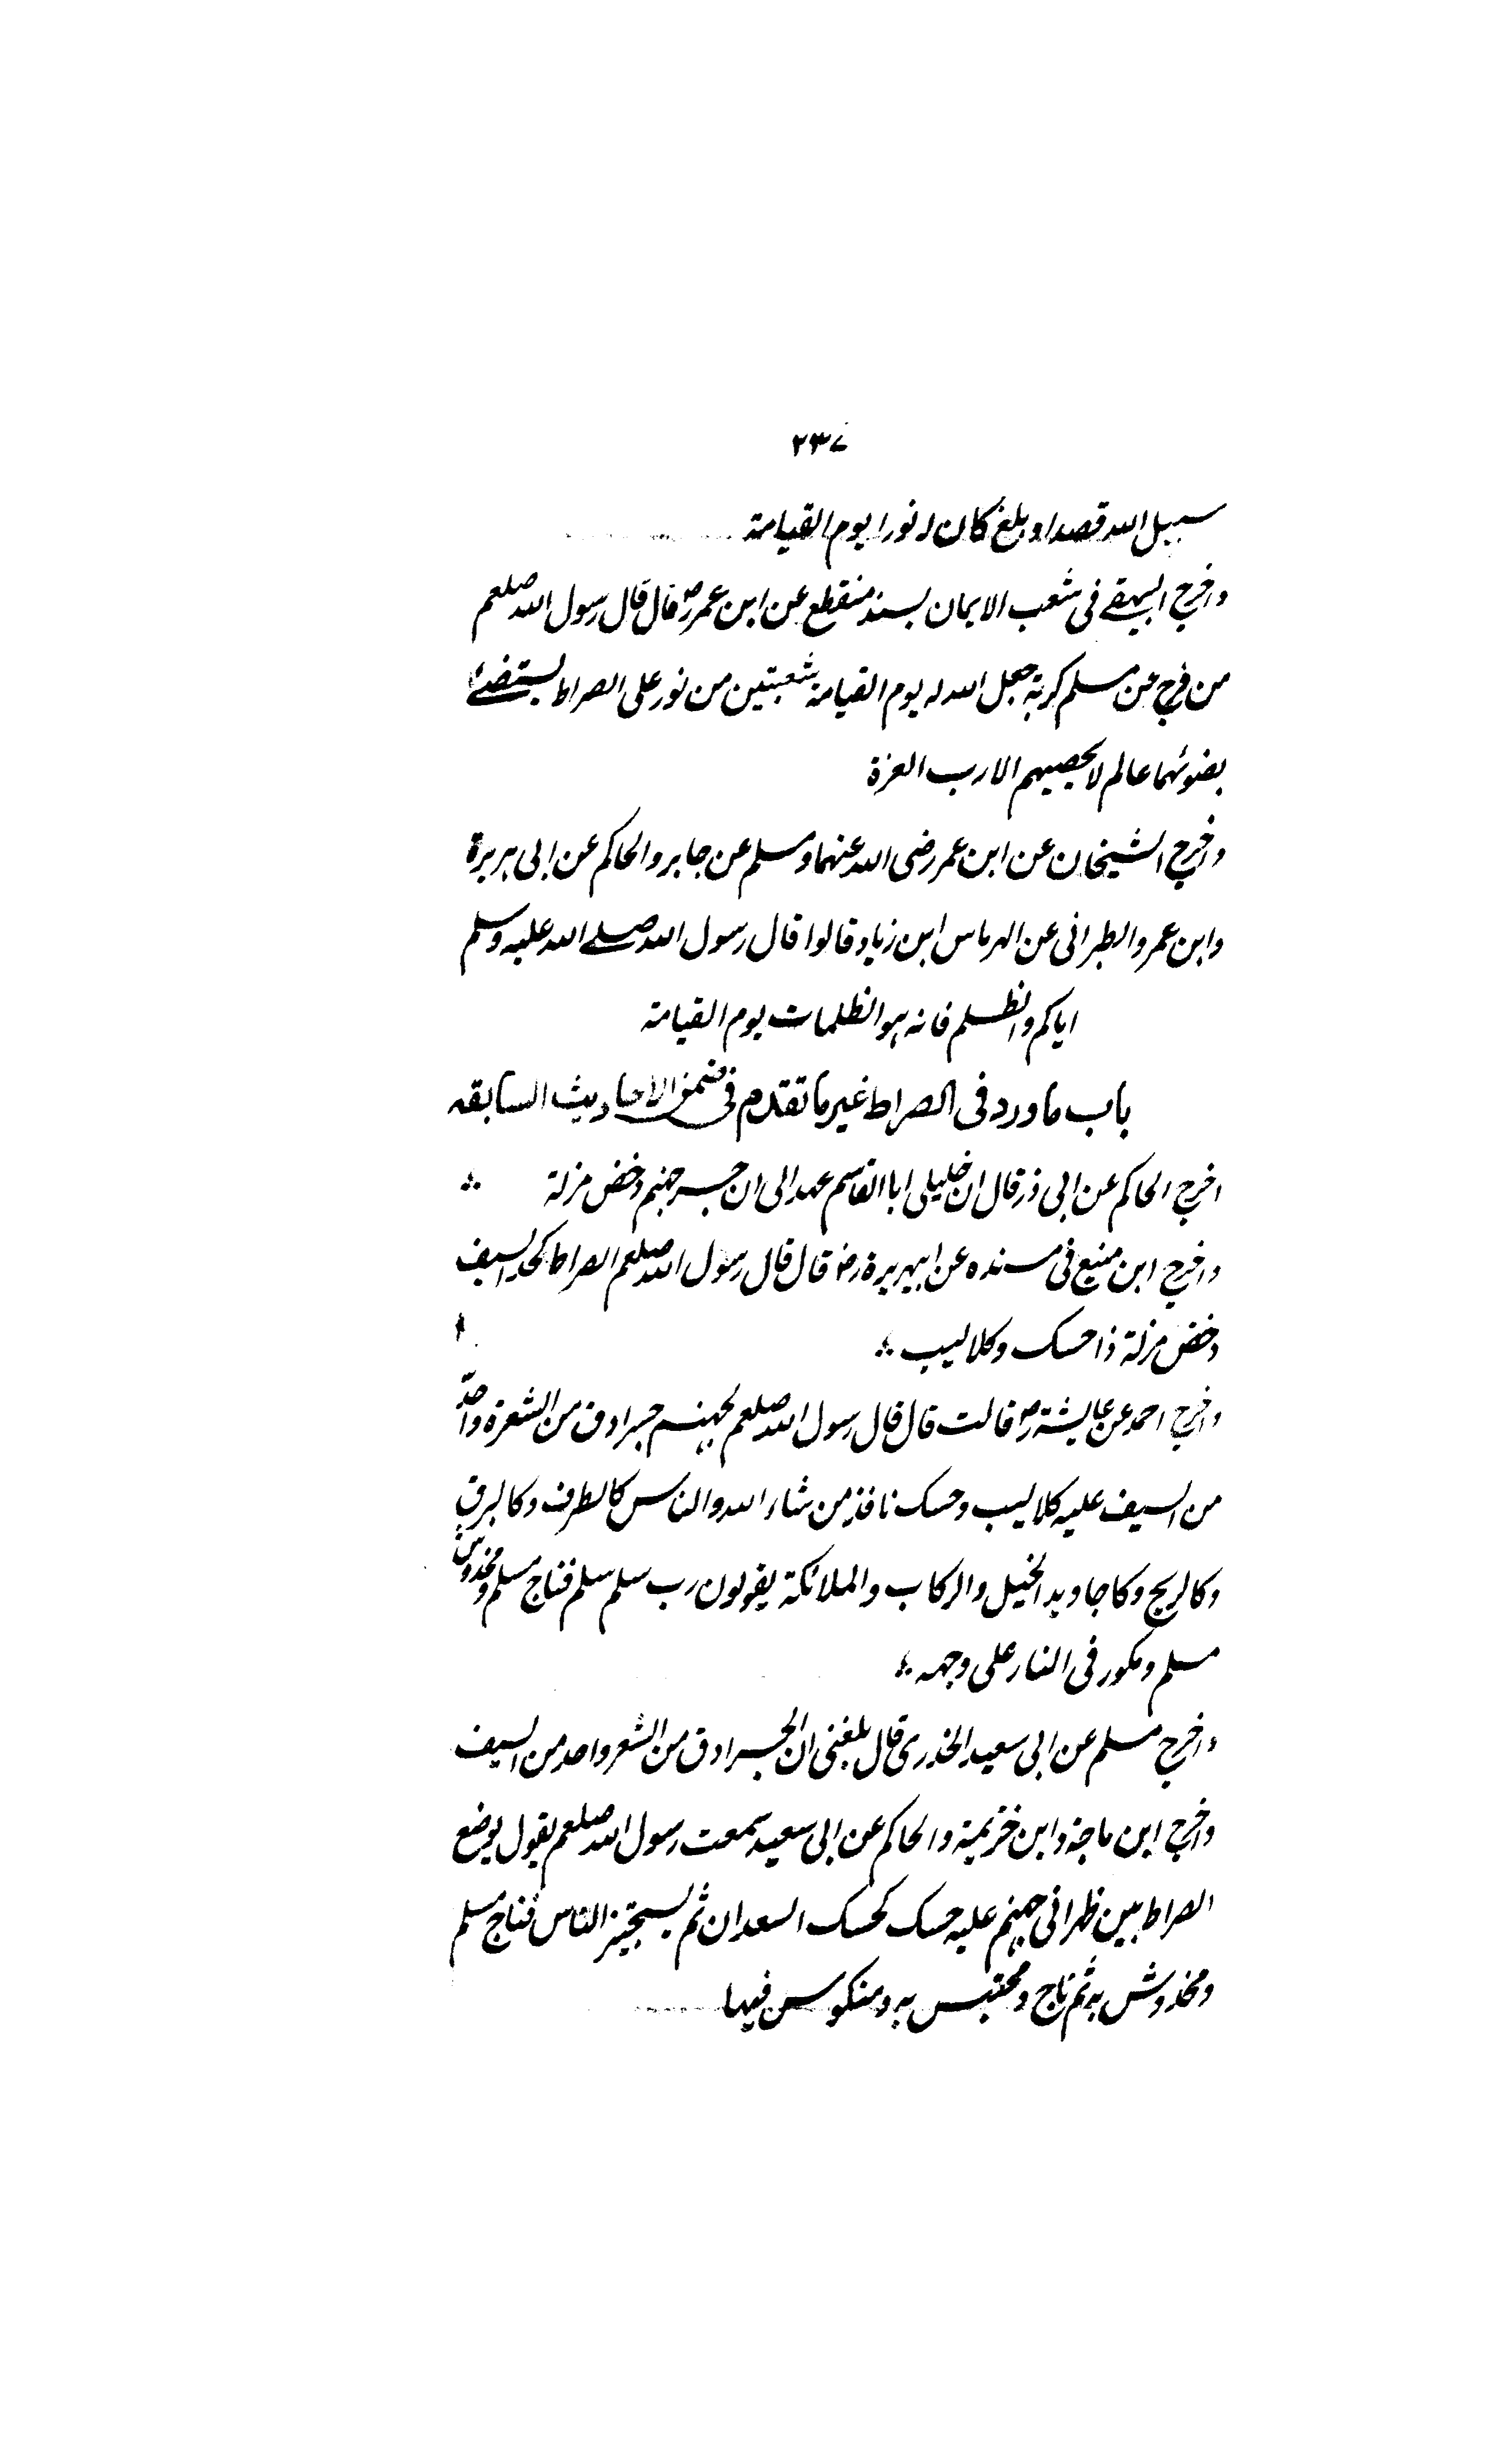 ۲۳۷
سبیل الله قصدا و بلغ کان له نورا یوم القیامة
واخرج البیهقے فی شعب الایمان بسند منقطع عن ابن عمر رض قال قال رسول الله صلعم
من فرج عن مسلم کربة جعل الله له یوم القیامة شعبتین من نور علی الصراط یستضئ
بضوئهما عالم لا یحصیهم الا رب العزة
واخرج الشیخان عن ابن عمر رضی الله عنهما و مسلم عن جابر والحاکم عن ابی هریرة
وابن عمر والطبرانی عن الهرماس ابن زیاد قالوا قال رسول الله صلے الله علیه وسلم
ایاکم والظلم فانه هو الظلمات یوم القیامة
باب ما ورد فی الصراط غیر ما تقدم فی ضمن الاحادیث السابقه
اخرج الحاکم عن ابی ذر قال ان خلیلی ابا القاسم عهد الی ان جسر جهنم دخض مزلة
واخرج ابن منیع فی مسنده عن ابیهریرة رض قال قال رسول الله صلعم الصراط کحد السیف
دخض مزلة ذا حسک وکلالیب
واخرج احمد عن عایشة رض قالت قال قال رسول الله صلعم لجهنم جسر ادق من الشعرة واحد
من السیف علیه کلالیب وحسک نافذ من شاء الله والناس کالطرف وکالبرق
وکالریح وکاجاوید الخیل والرکاب والملائکة یقولون رب سلم سلم فناج مسلم ومخدوش
مسلم ومکور فی النار علی وجهه
واخرج مسلم عن ابی سعید الخدری قال بلغنی ان الجسر ادق من الشعر واحد من السیف
واخرج ابن ماجة وابن خزیمة والحاکم عن ابی سعید سمعت رسول الله صلعم یقول یوضع
الصراط بین ظهرانی جهنم علیه حسک کحسک السعدان ثم یستجیز الناس فناج مسلم
ومخدوش به ثم ناج ومحتبس به ومنکوس فیها